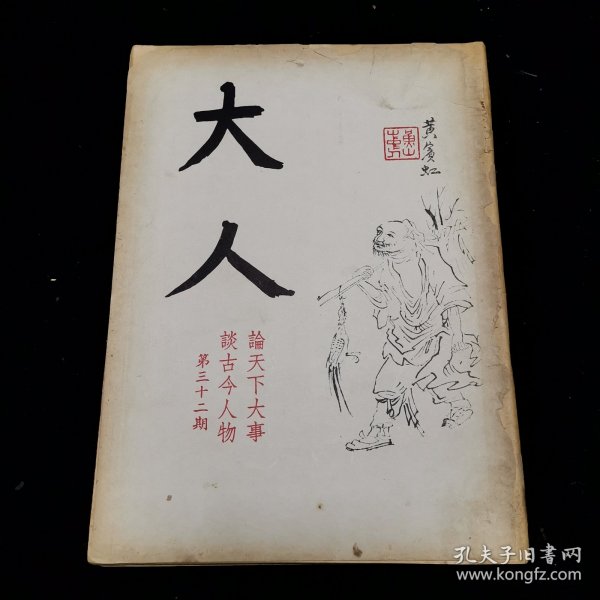 大人
黃賓虹
論天下大事
談古今人物
第三十二期
孔夫子旧書网
www.kongfz.com